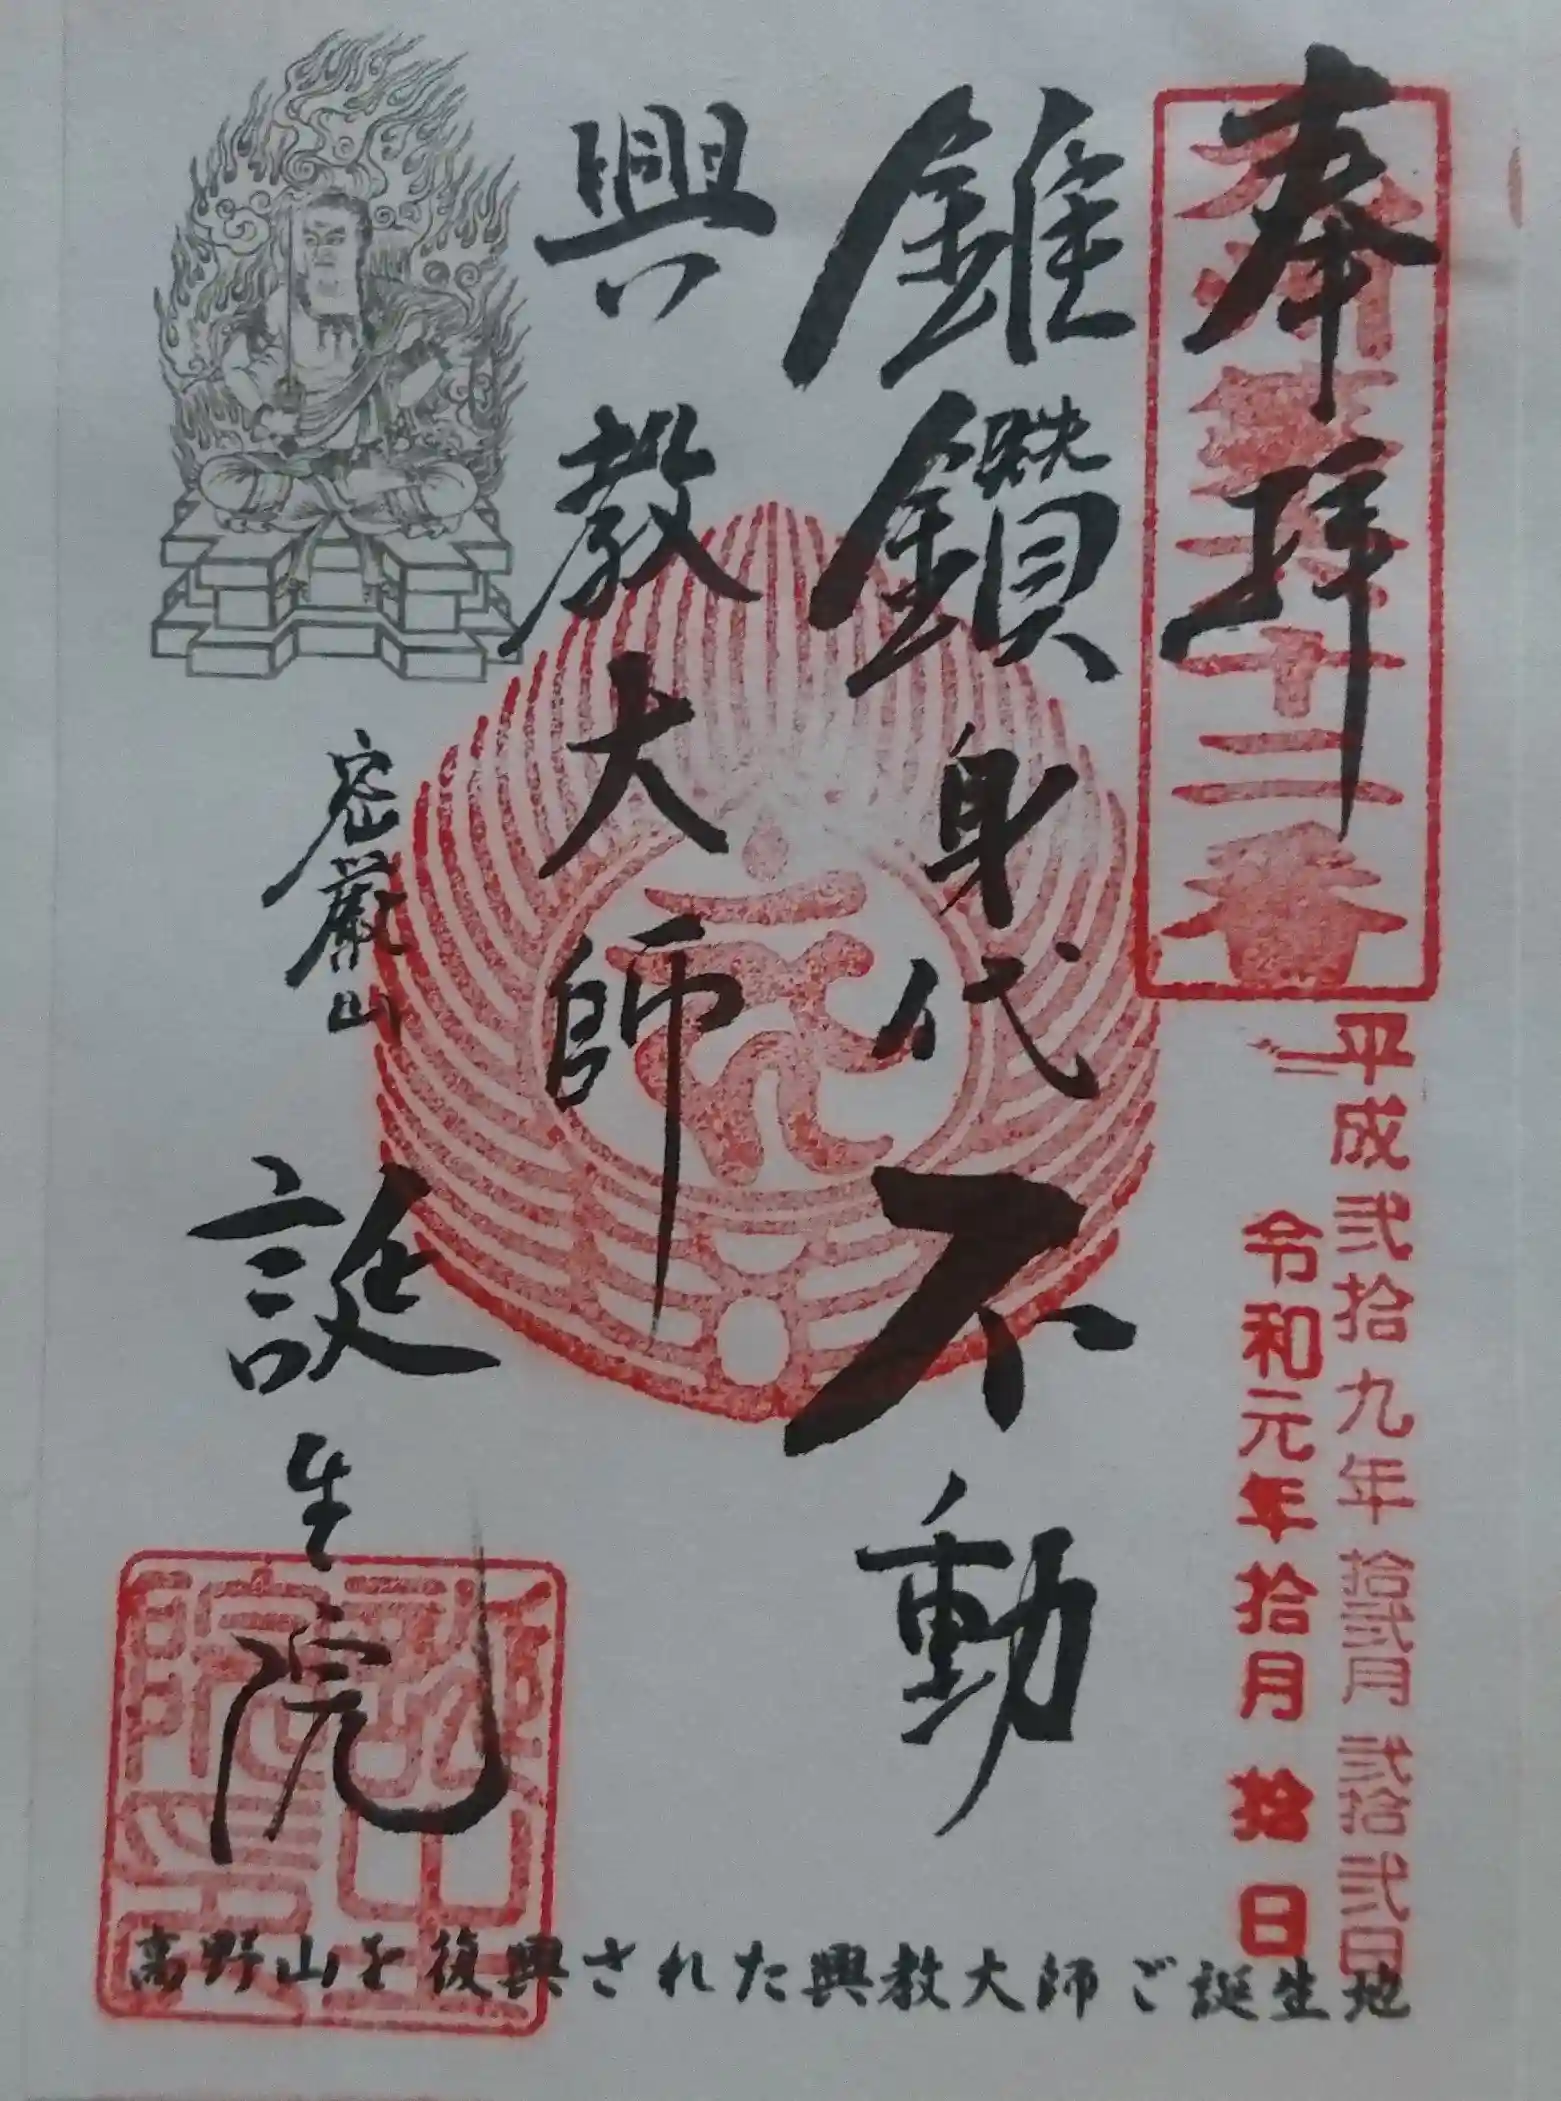 奉拝
九州第五十二番
平成弐拾九年拾弐月弐拾弐日
令和元年拾月拾日
錐鑚身代不動
興教大師
密厳山
誕生院
誕生院印
高野山を復興された興教大師ご誕生地